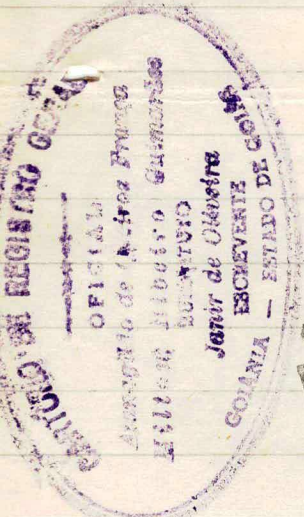 CARTORIO DE REGISTRO GERAL
OFICIAL
de França
Ribeiro Guimarães
SUBSTITUTO
Janir de Oliveira
ESCREVENTE
GOIANIA — ESTADO DE GOIÁS